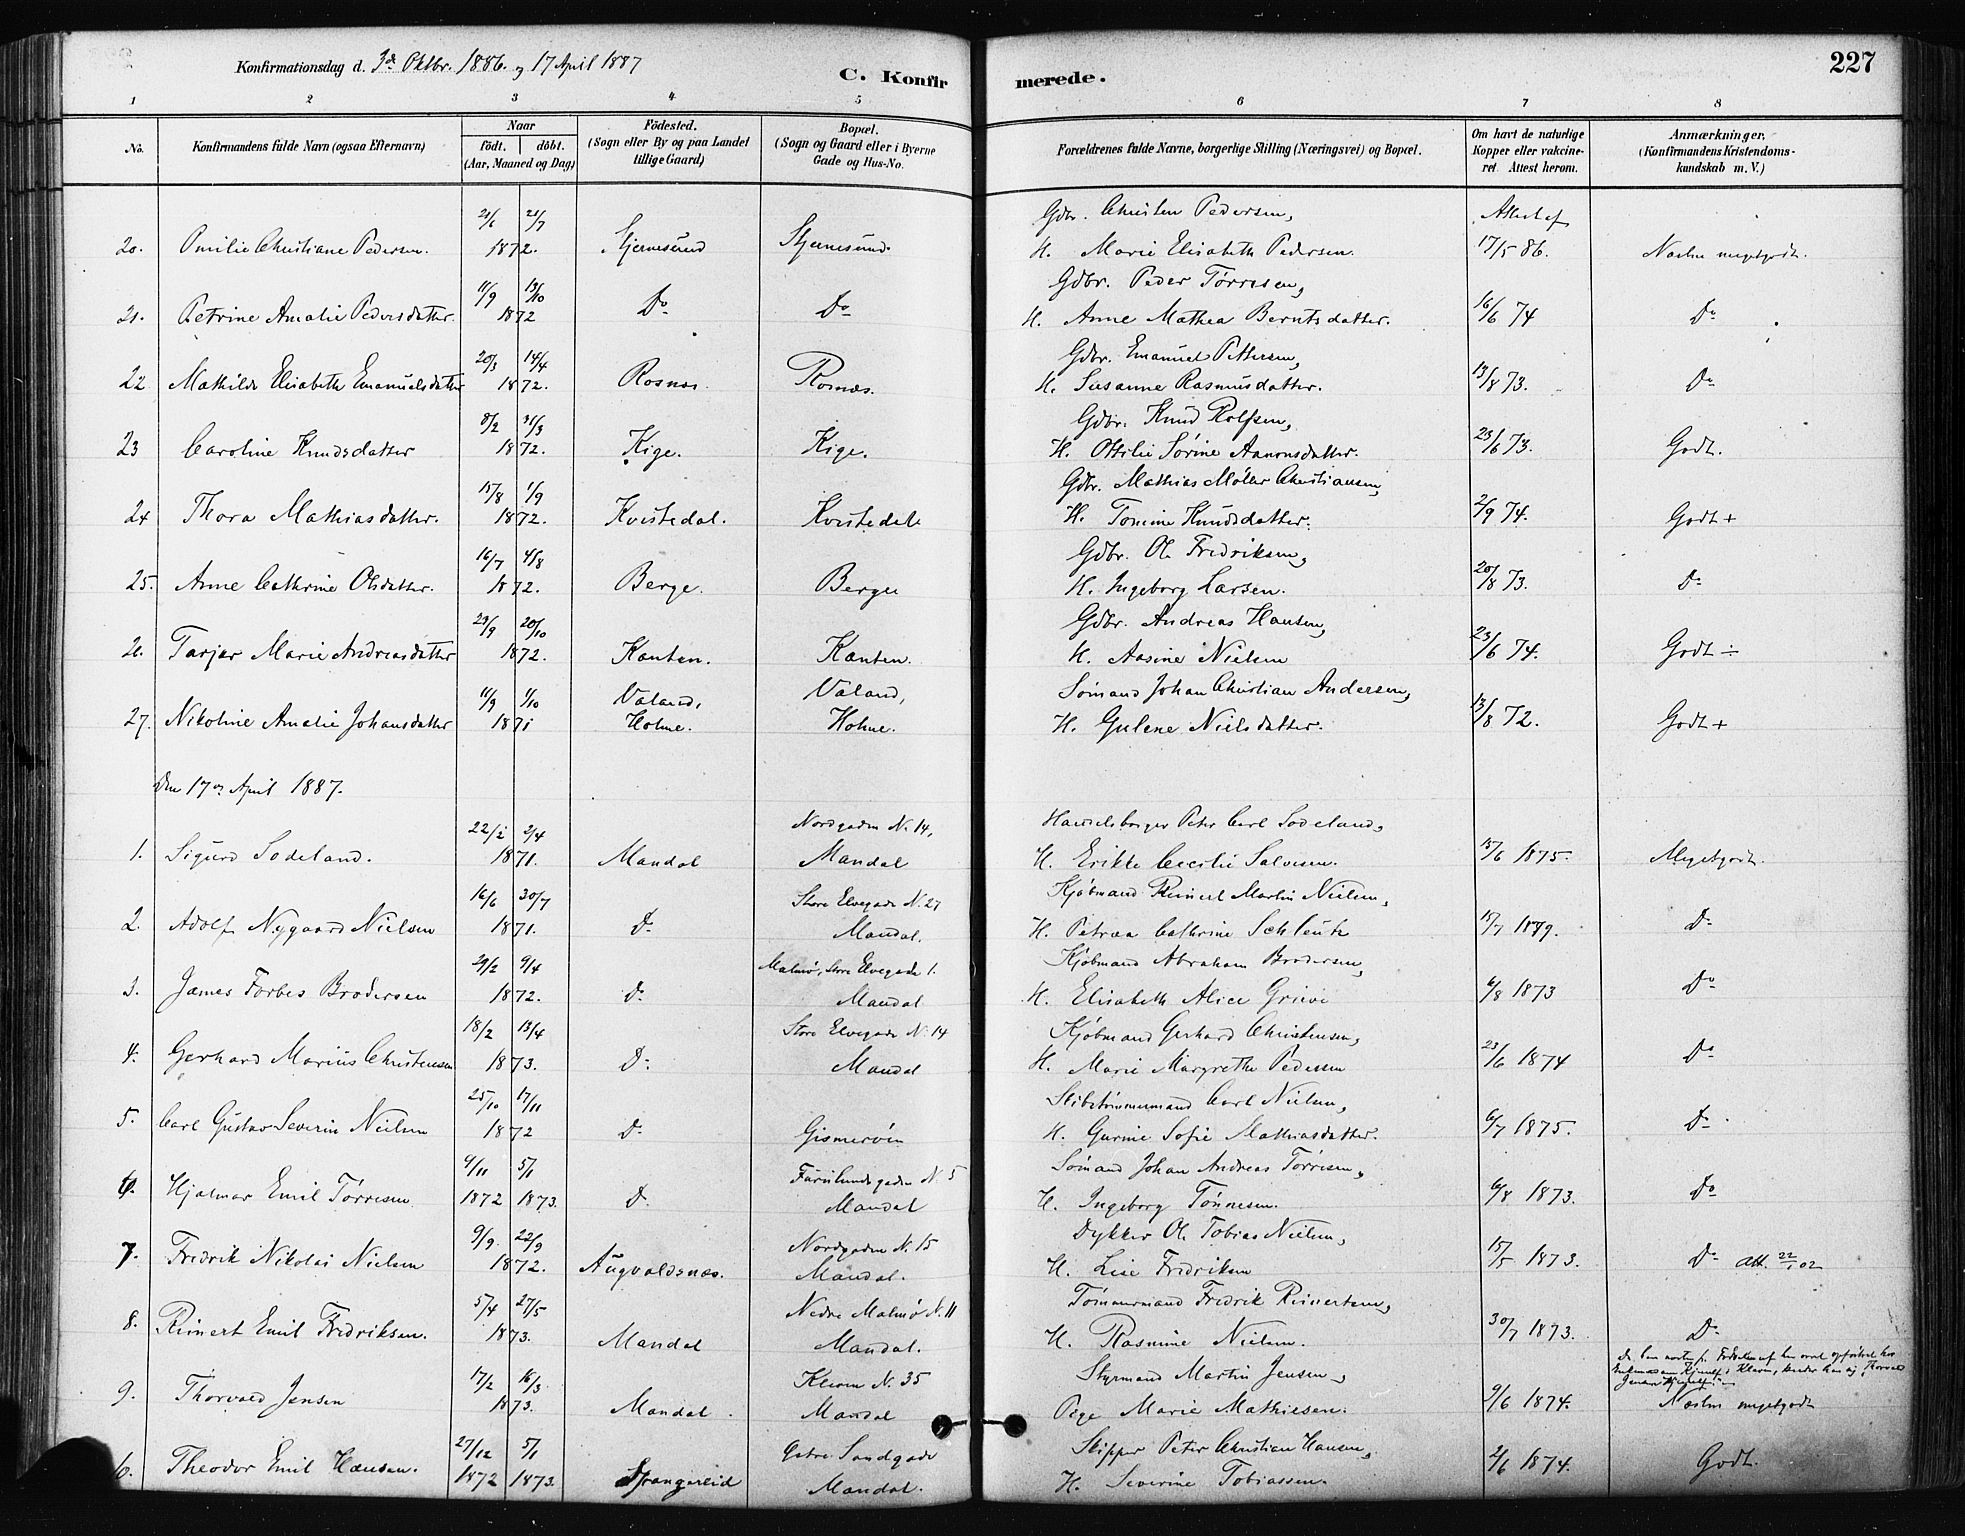 Konfirmationsdag d. 3de Oktbr. 1886. og 17 April 1887
C. Konfirmerede.
227
1 2 3 4 5 6 7 8
No. Konfirmandens fulde Navn (ogsaa Efternavn) Naar født. døbt. (Aar, Maaned og Dag) Fødested. (Sogn eller By og paa Landet tillige Gaard) Bopæl. (Sogn og Gaard eller i Byerne Gade og Hus-No. Forældrenes fulde Navne, borgerlige Stilling (Næringsvei) og Bopæl. Om havt de naturlige Kopper eller vakcineret. Attest herom. Anmærkninger. (Konfirmandens Kristendomskundskab m. V.)
Gdbr. Christen Pedersen, Attest af
20. Omilie Christiane Pedersen. 1872. Stjernesund Stjernesund. H. Marie Elisabeth Pedersen. 17/5 86. Næsten megetgodt.
11/9 13/10 Gdbr. Peder Tørresen,
21. Petrine Amalie Pedersdatter. 1872 Do Do H. Anne Mathea Berntsdatter. 16/6 74 Do
20/3 14/4 Gdbr. Emanuel Pettersen,
22 Mathilde Elisabeth Emanuelsdatter 1872. Rosnæs. Rosnæs. H. Susanne Rasmusdatter. 13/8 73. Do
8/2 31/3 Gdbr. Knud Rolfsen,
23 Caroline Knudsdatter 1872. Kige. Kige. H. Ottilie Sørine Aanonsdatter. 23/6 73. Godt.
15/8 1/9 Gdbr. Mathias Møller Christiansen,
24 Thora Mathiasdatter. 1872. Kvistedal. Kvistedal H. Tomine Knudsdatter. 2/9 74. Godt +
16/7 4/8 Gdbr. Ole Fredriksen,
25. Anne Cathrine Olsdatter. 1872. Berge. Berge H. Ingeborg Larsen. 20/8 73. Do
29/9 20/10 Gdbr. Andreas Hansen,
26. Tarjer Marie Andreasdatter 1872. Kanten. Kanten. H. Aasine Nielsen 23/6 74. Godt ÷
11/9 1/10 Valand, Valand, Sømand Johan Christian Andersen,
27. Nikoline Amalie Johansdatter 1871 Holme. Holme. H. Gulene Nielsdatter. 13/8 72. Godt +
Den 17de April 1887.
22/2 2/4 Nordgaden N. 14, Handelsborger Peter Carl Sodeland,
1. Sigurd Sodeland. 1871. Mandal Mandal H. Erikke Cecilie Salvesen. 15/6 1875. Megetgodt.
16/6 30/7 Store Elvegade N. 27 Kjøbmand Reinert Martin Nielsen,
2. Adolf Nygaard Nielsen 1871. Do Mandal. H. Petrea Cathrine Schleute 15/7 1879. Do
29/2 9/4 Malmø, Store Elvegade 1. Kjøbmand Abraham Brodersen,
3. James Forbes Brodersen 1872. Do Mandal H. Elisabeth Alice Grieve 6/8 1873 Do
18/2 13/4 Store Elvegade N. 14 Kjøbmand Gerhard Christensen,
4. Gerhard Marius Christensen 1873. Do Mandal H. Marie Margrethe Pedersen 23/6 1874 Do
25/10 17/11 Skibstømmermand Carl Nielsen,
5. Carl Gustav Severin Nielsen 1872 Do Gismerøen H. Gurine Sofie Mathiasdatter. 6/7 1875. Do
9/11 5/1 Furulundsgaden N. 5 Sømand Johan Andreas Tørresen,
6. Hjalmar Emil Tørresen 1872 1873. Do Mandal H. Ingeborg Tønnesen. 6/8 1873. Do
9/9. 22/9 Nordgaden N. 15 Dykker Ol. Tobias Nielsen,
7. Fredrik Nikolai Nielsen 1872. Augvaldsnæs. Mandal. H. Lise Fredriksen 15/5 1873. Do Att. 22/1 02
5/4 27/5 Nedre Malmø N. 11 Tømmermand Fredrik Reinertsen,
8. Reinert Emil Fredriksen. 1873. Mandal Mandal. H. Rasmine Nielsen. 30/7 1873. Do
17/2 16/3 Kleven N. 35 Styrmand Martin Jensen,
9. Thorvald Jensen 1873. Mandal. Mandal Pige Marie Mathiesen. 9/6 1874. Næsten megetgodt
27/12 5/1 Østre Sandgade Skipper Peter Christian Hansen,
10. Theodor Emil Hansen. 1872 1873. Spangereid Mandal. H. Severine Tobiassen. 2/6 1874. Godt.